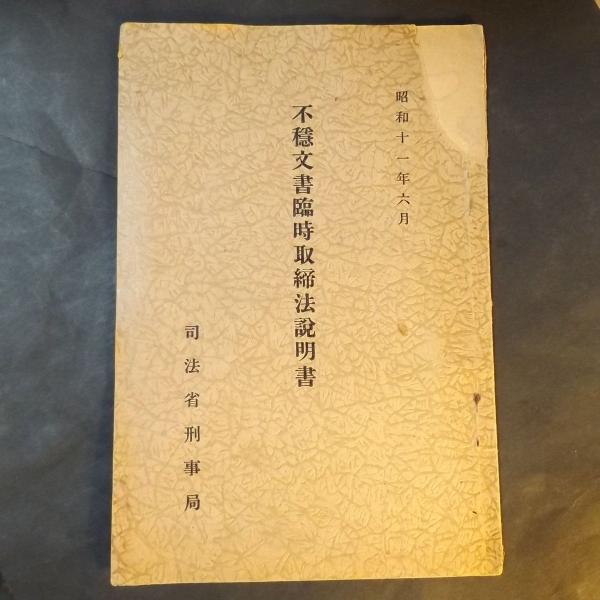 昭和十一年六月
不穩文書臨時取締法說明書
司法省刑事局